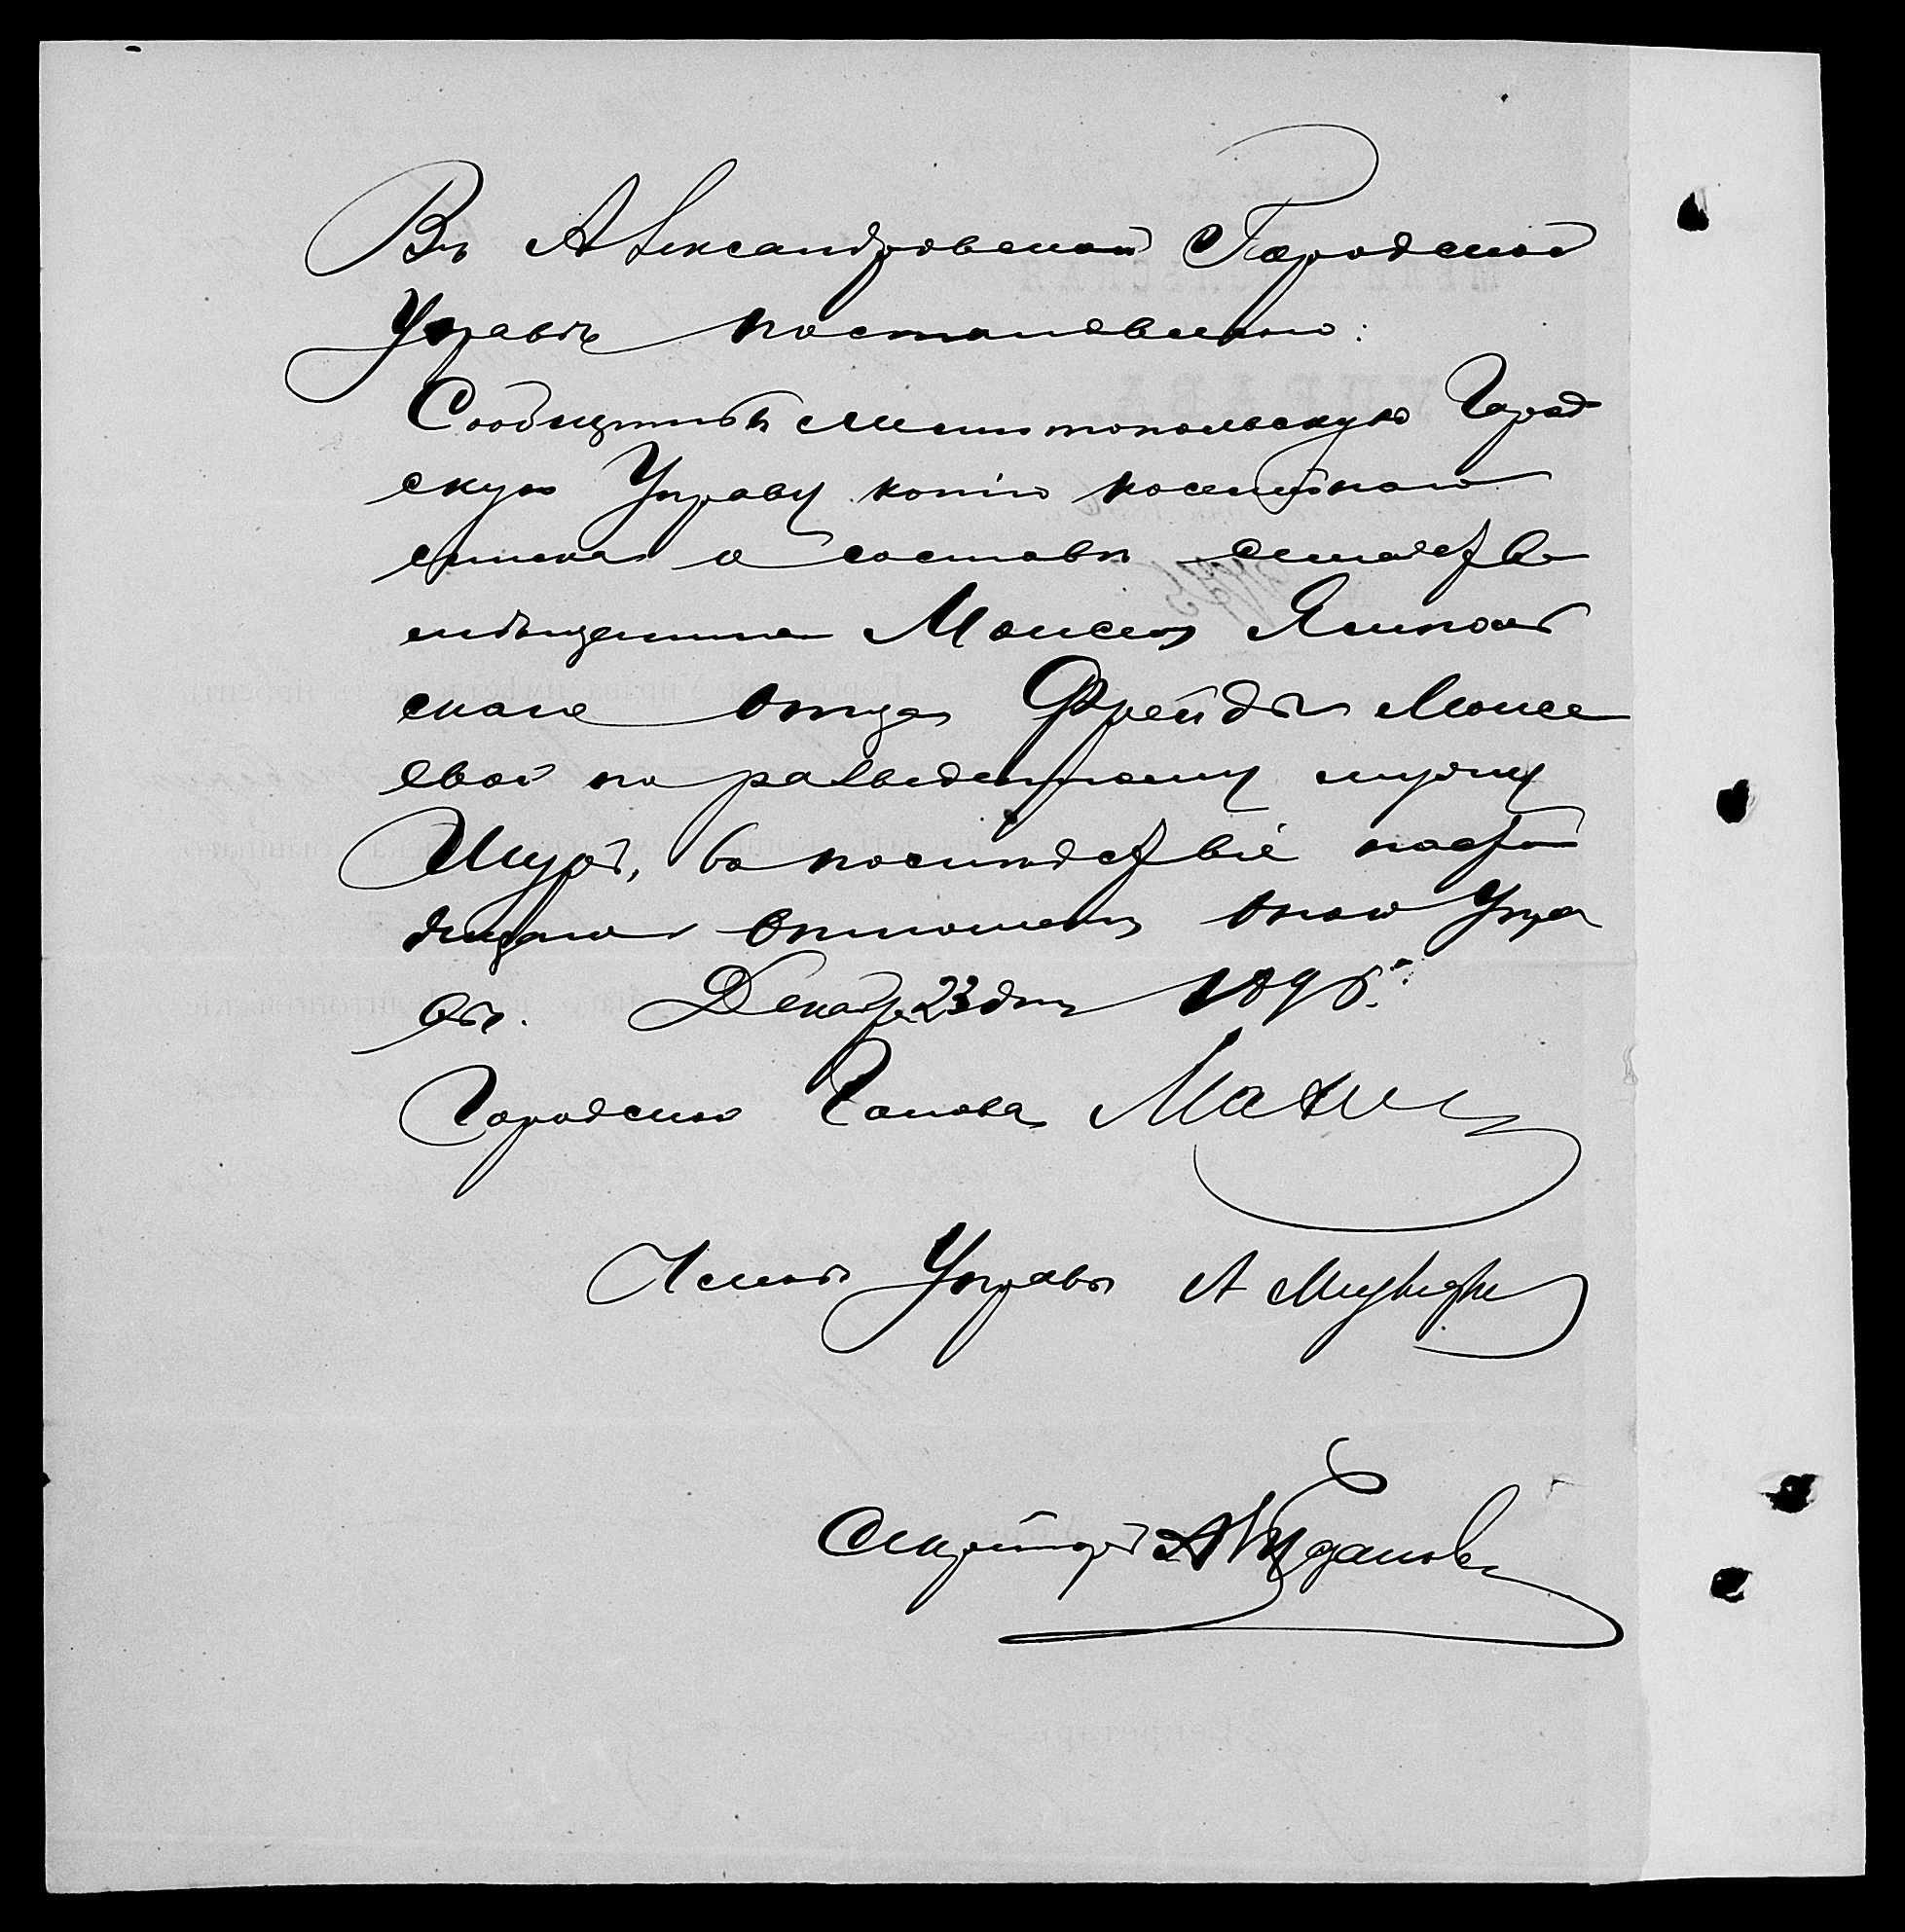 Въ Александровской Городской
Управѣ постановлено:
Сообщить Мелитопольскую Город
скую Управу копію посемейнаго
списка о составѣ семейства
мѣщанина Моисея Ямполь
скаго отца Фрейды Моисе
евой по разведенному мужу
Шуръ, въ послѣдствіе настоя
щаго отношенія оной Упра
вы. Декабря 23 дня 1896 г.
Городской Голова
Членъ Управы А
Секретарь А